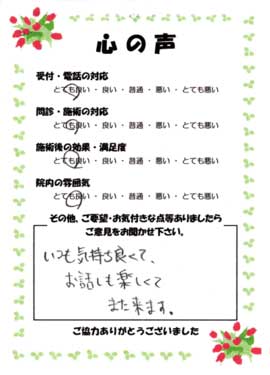 心の声
受付・電話の対応
とても良い・良い・普通・悪い・とても悪い
問診・施術の対応
とても良い・良い・普通・悪い・とても悪い
施術後の効果・満足度
とても良い・良い・普通・悪い・とても悪い
院内の雰囲気
とても良い・良い・普通・悪い・とても悪い
その他、ご要望・お気付きな点等ありましたら
ご意見をお聞かせ下さい。
いつも気持ち良くて、
お話しも楽しくて
また来ます。
ご協力ありがとうございました